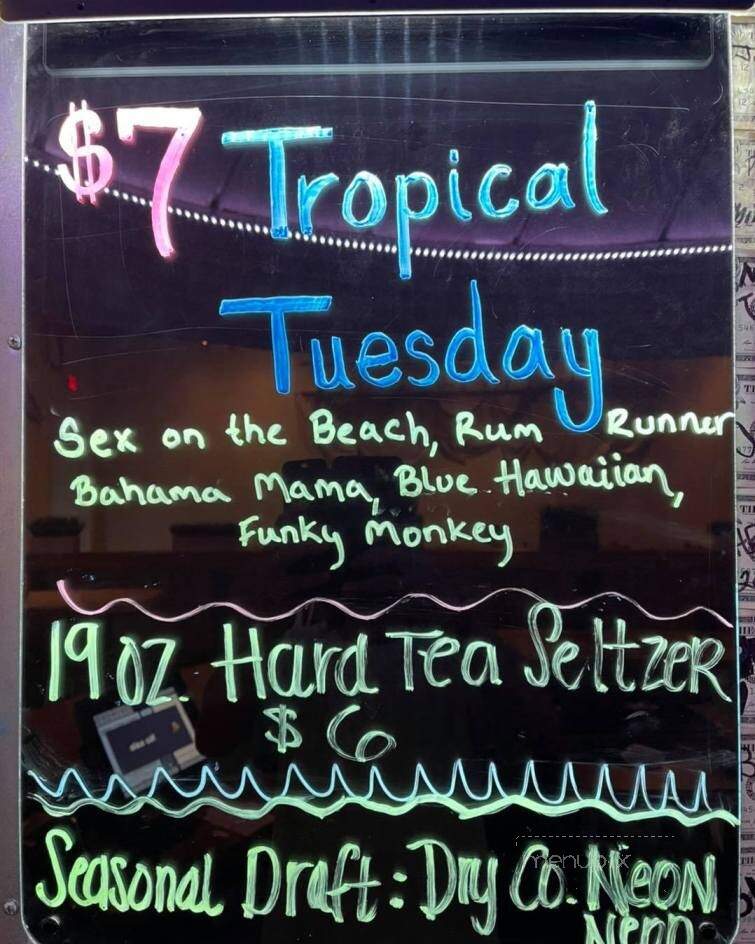 $7 Tropical
Tuesday
Sex on the Beach, Rum Runner
Bahama Mama, Blue Hawaiian,
Funky Monkey
19 oz. Hard Tea Seltzer
$6
Seasonal Draft: Dry Co. Neon
menupix